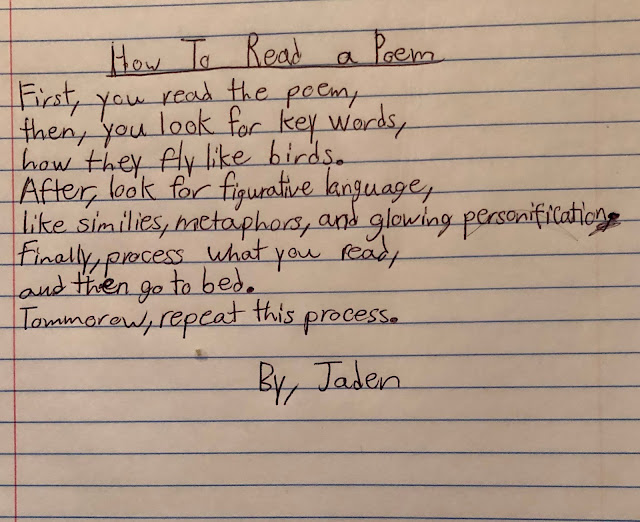 How To Read a Poem
First, you read the poem,
then, you look for key words,
how they fly like birds.
After, look for figurative language,
like similies, metaphors, and glowing personification.
Finally, process what you read,
and then go to bed.
Tommorow, repeat this process.
By, Jaden